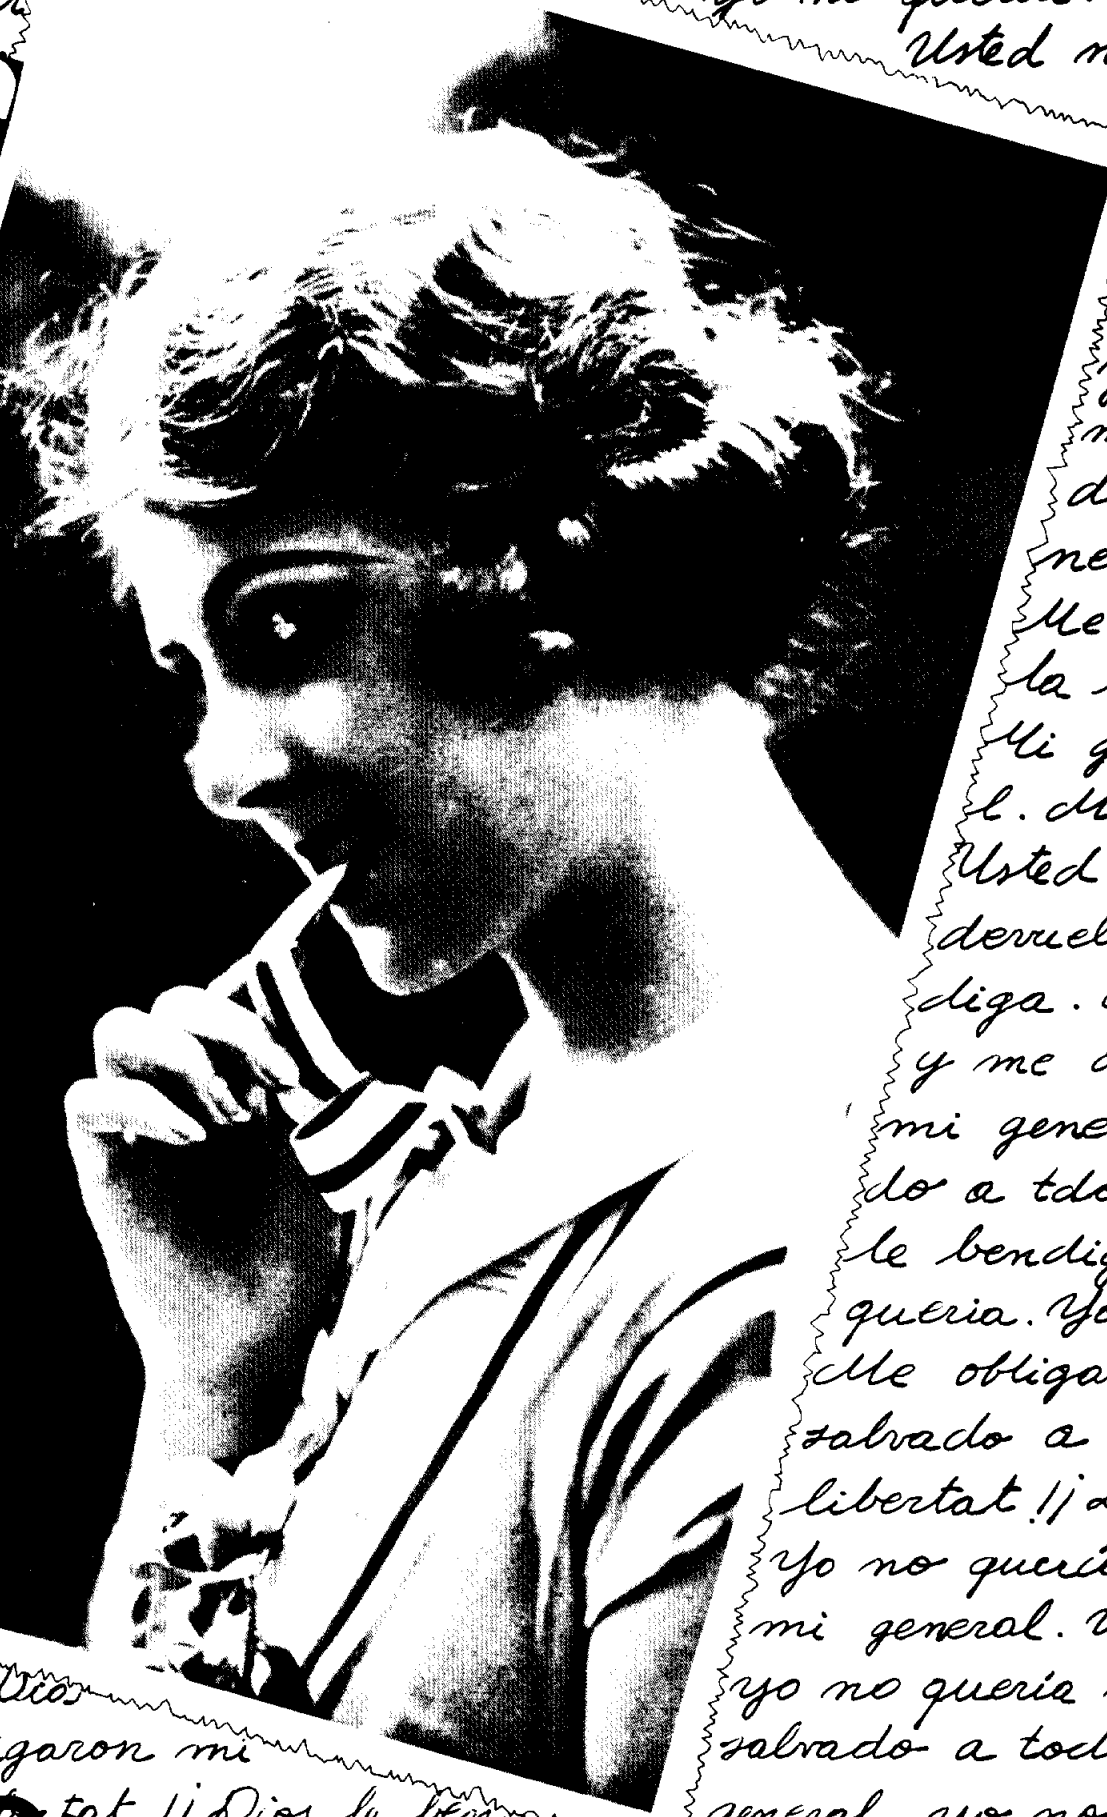 Usted
d
ne
Me
la
Mi g
l. Mi
Usted
devuel
diga.
y me
mi gene
do a tdo
le bendig
queria. Yo
Me obliga
salvado a
libertat!!¡
Yo no queri
mi general.
yo no quería
salvado a tod
Dios
garon mi
tat !!¡Dios le ben
general. yo no